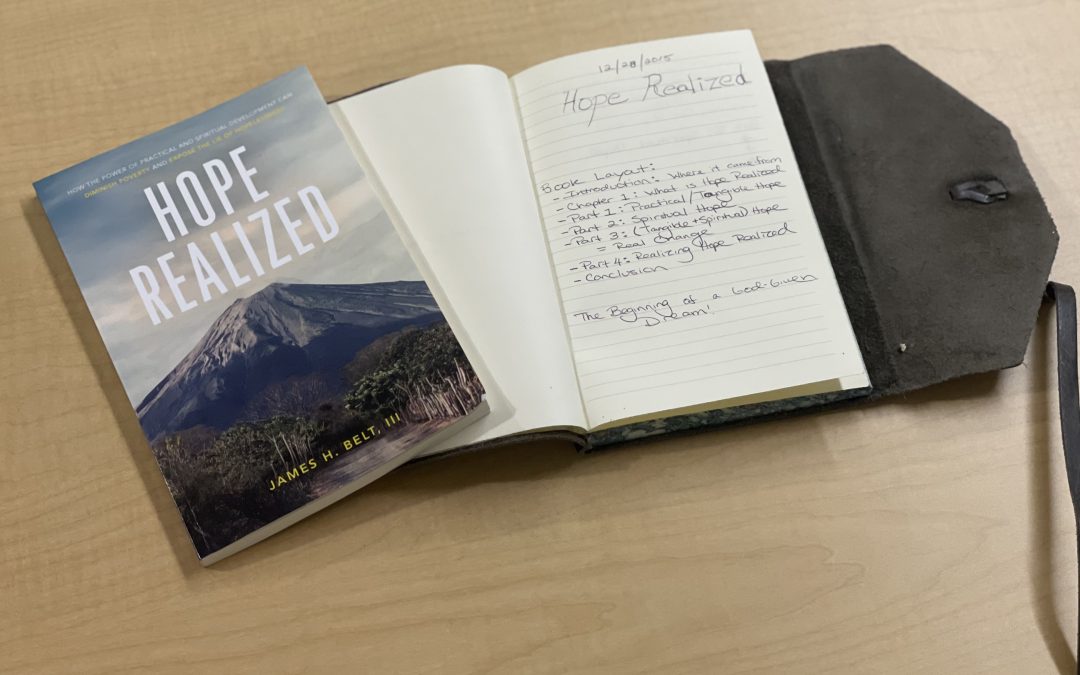 HOW THE POWER OF PRACTICAL AND SPIRITUAL DEVELOPMENT CAN
DIMINISH POVERTY AND EXPOSE THE LIE OF HOPELESSNESS
HOPE
REALIZED
JAMES H. BELT, III
12/28/2015
Hope Realized
Book Layout:
- Introduction: Where it came from
- Chapter 1: What is Hope Realized
- Part 1: Practical/Tangible Hope
- Part 2: Spiritual Hope
- Part 3: (Tangible + Spiritual) Hope
= Real Change
- Part 4: Realizing Hope Realized
- Conclusion
The Beginning of a God-Given
Dream!